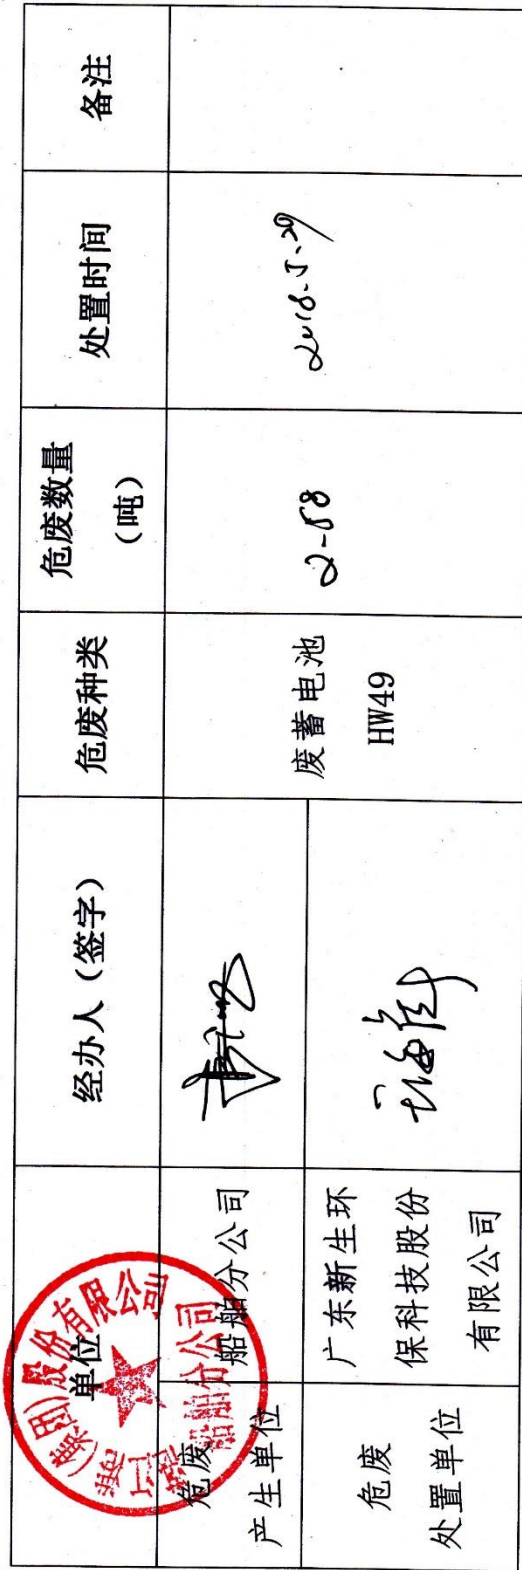 单位
经办人（签字）
危废种类
危废数量
（吨）
处置时间
备注
危废
产生单位
船舶分公司
废蓄电池
HW49
2-58
2018.5.29
危废
处置单位
广东新生环
保科技股份
有限公司
（集团）股份有限公司
船舶分公司